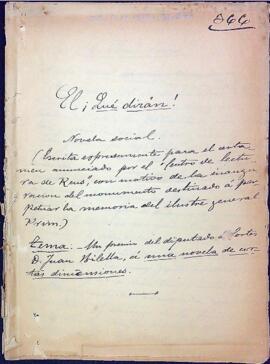 866
El ¡Qué dirán!
Novela social.
(Escrita espresamente para el certa-
men anunciado por el "Centro de lectu-
ra de Reus", con motivo de la inaugu-
racion del monumento destinado á per-
petuar la memoria del ilustre general
Prim.)
Lema.- Un premio del diputado á Cortes
D. Juan á una novela de cor-
tas dimensiones.